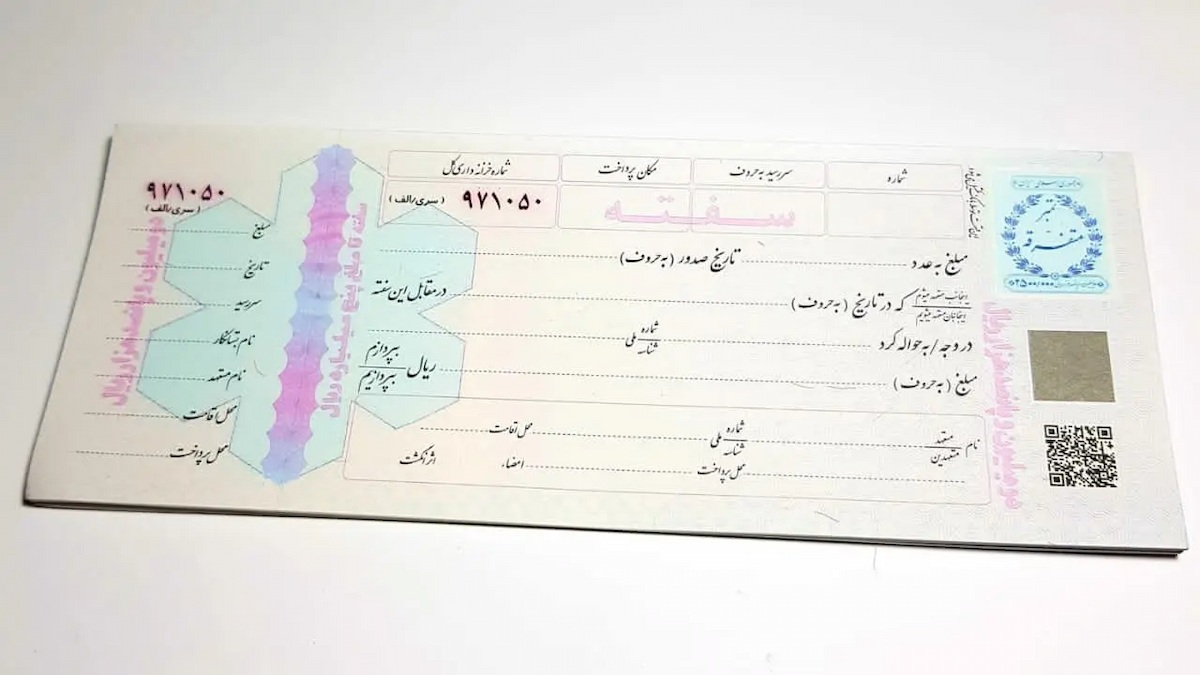 شماره
سررسید به حروف
مکان پرداخت
شماره خزانه داری کل
سفته
۹۷۱۰۵۰
(سری/الف)
مبلغ به عدد
تاریخ صدور (به حروف)
اینجانب متعهد میشوم
اینجانبان متعهد میشویم
که در تاریخ (به حروف)
در مقابل این سفته
در وجه / به حواله کرد
شماره
شناسه
ملی
مبلغ (به حروف)
ریال
بپردازم
بپردازیم
نام
متعهد
متعهدین
شماره
شناسه
ملی
محل اقامت
محل پرداخت
امضاء
اثر انگشت
جمهوری اسلامی ایران
تمبر
متفرقه
۲۵۰۰/۰۰۰
دو میلیون و پانصد هزار ریال
سفته تا مبلغ پنج میلیارد ریال
دو میلیون و پانصد هزار ریال
۹۷۱۰۵۰
(سری/الف)
مبلغ
تاریخ
سررسید
نام بستانکار
نام متعهد
محل اقامت
محل پرداخت